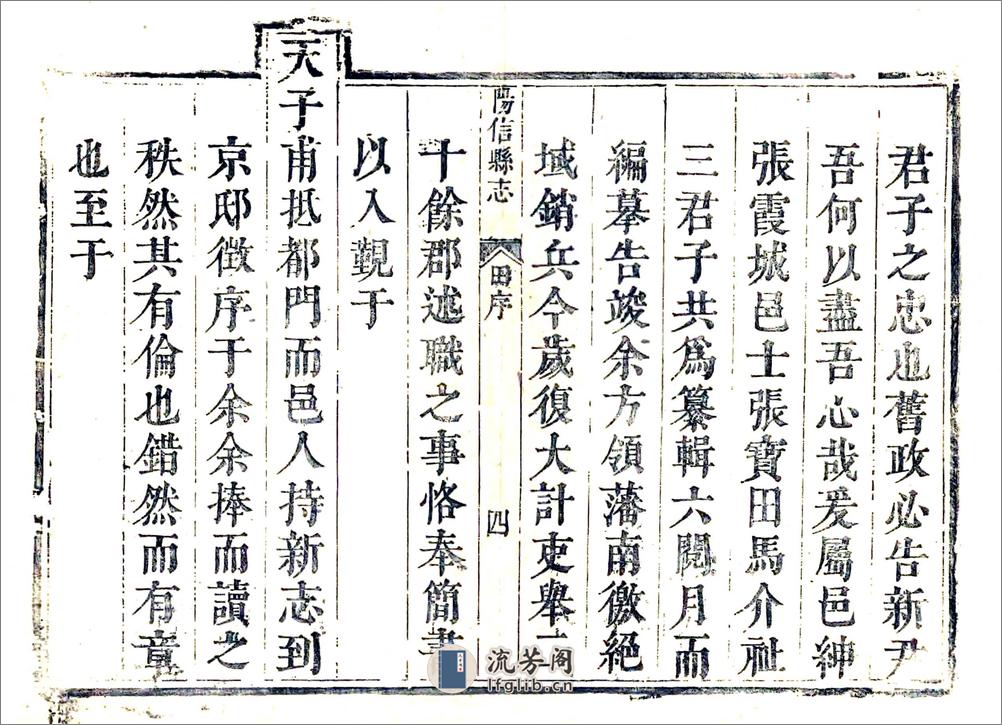 君子之忠也舊政必告新尹
吾何以盡吾心哉爰屬邑紳
張霞城邑士張寶田馬介祉
三君子共為纂輯六閱月而
編摹告竣余方領藩南徼絕
域銷兵今歲復大計吏舉
十餘郡述職之事恪奉簡書
以入覲于
陽信縣志 田序 四
天子甫抵都門而邑人持新志到
京邸徵序于余余捧而讀之
秩然其有倫也錯然而有章
也至于
流芳阁
lfglib.cn